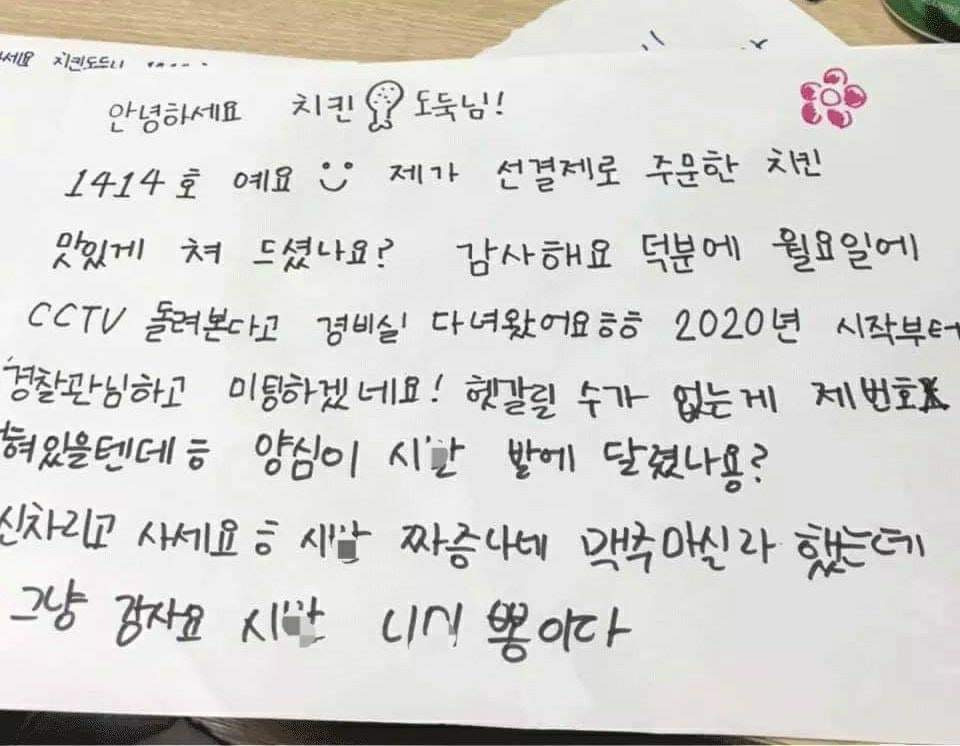 치킨도드니 .....
안녕하세요 치킨 도둑님!
1414호 예요 제가 선결제로 주문한 치킨
맛있게 쳐 드셨나요? 감사해요 덕분에 월요일에
CCTV 돌려본다고 경비실 다녀왔어요ㅎㅎ 2020년 시작부터
경찰관님하고 미팅하겠네요! 헷갈릴 수가 없는게 제번호
혀있을텐데ㅎ 양심이 시 발에 달렸나용?
신차리고 사세요ㅎ 시 짜증나네 맥주마실라 했는데
그냥 감자요 시 니 뽕이다